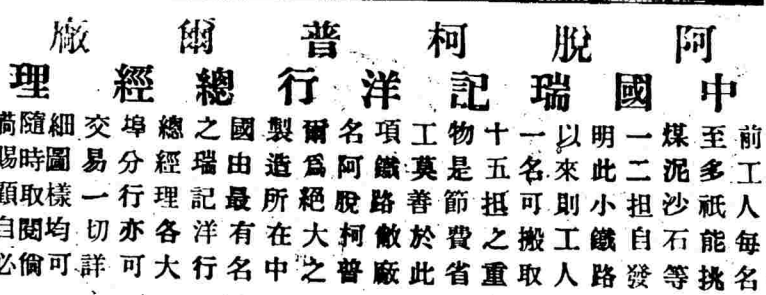 阿脫柯普爾廠
中國瑞記洋行總經理
前工人每名
至多祇能挑
煤泥沙石等
一二担自發
明此小鐵路
以來則工人
一名可搬取
十五担之重
物是節費省
工莫善於此
項鐵路敝廠
名阿脫柯普
爾爲絕大之
製造所在中
國由最有名
之瑞記洋行
總經理各大
埠分行亦可
交易一切詳
細圖樣均可
隨時取閱倘
賜顧自必